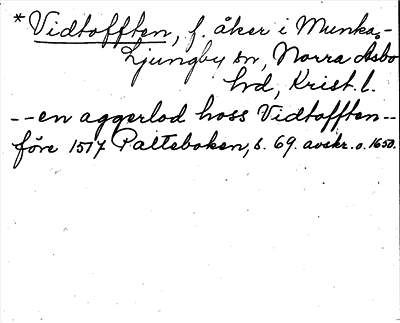 * Vidtofften, f. åker i Munka-
Ljungby sn, Norra Åsbo
hd, Krist. l.
-- en aggerlod hoss Vidtofften --
före 1517 Palteboken, s. 69. avskr. o. 1650.